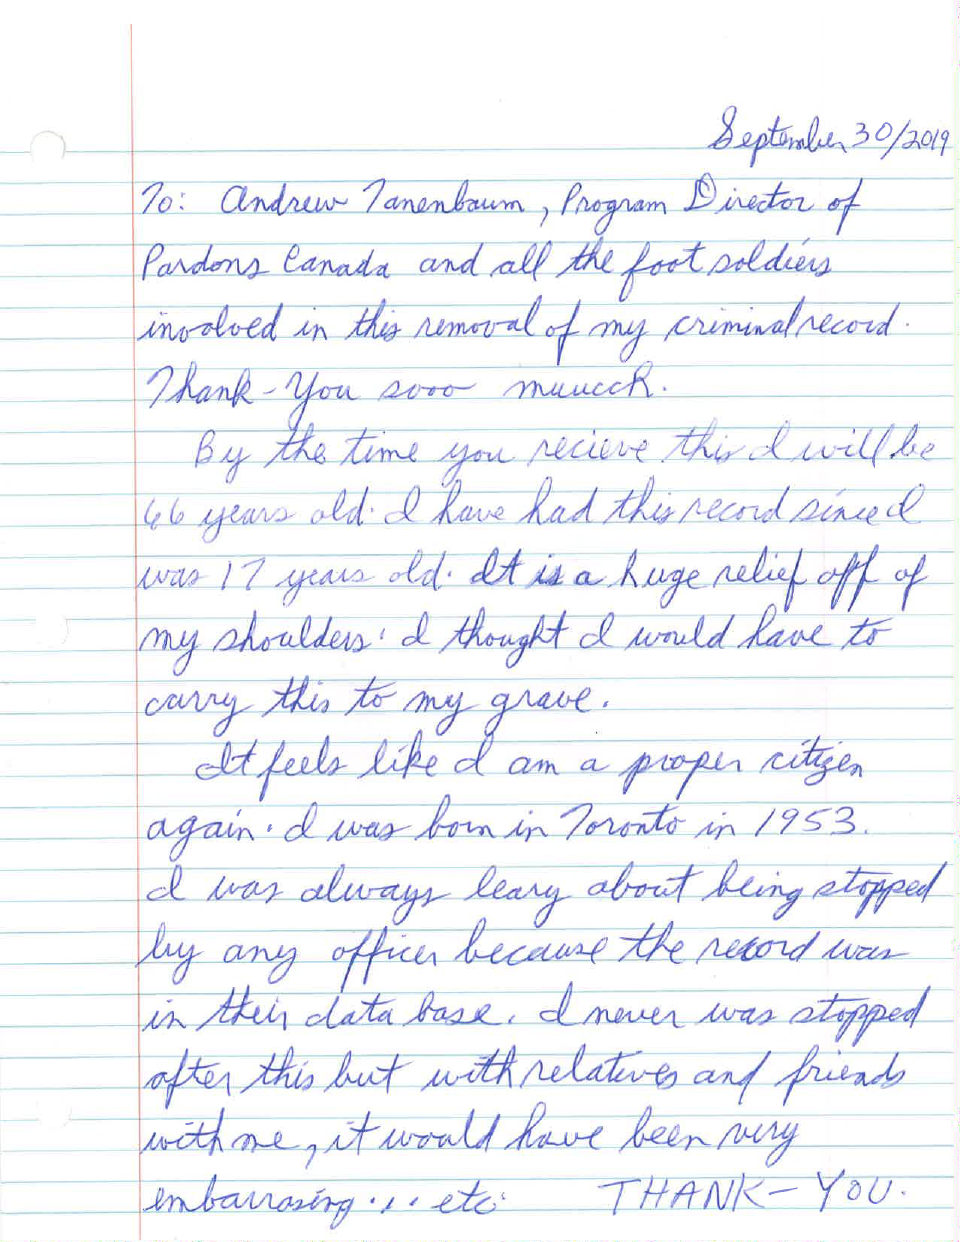 September 30/2019
To: Andrew Tanenbaum, Program Director of
Pardons Canada and all the foot soldiers
involved in this removal of my criminal record.
Thank-You sooo muuucch.
By the time you recieve this I will be
66 years old. I have had this record since I
was 17 years old. It is a huge relief off of
my shoulders. I thought I would have to
carry this to my grave.
It feels like I am a proper citizen
again. I was born in Toronto in 1953.
I was always leary about being stopped
by any officer because the record was
in their data base. I never was stopped
after this but with relatives and friends
with me, it would have been very
embarrasing... etc. THANK-YOU.